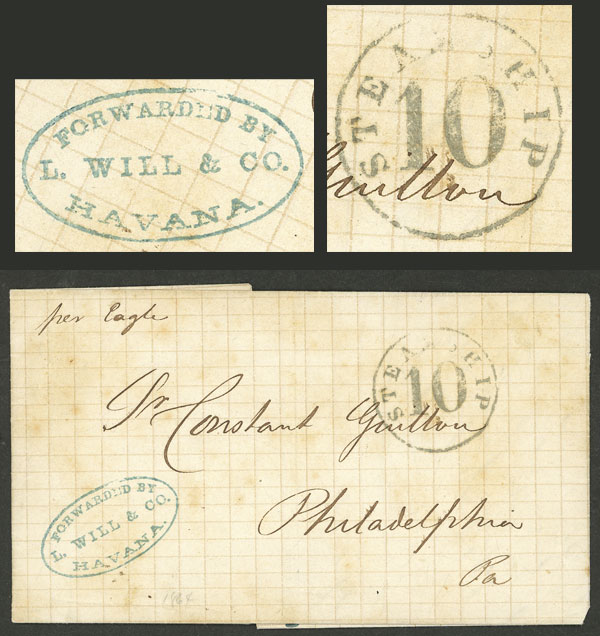 FORWARDED BY
L. WILL & CO.
HAVANA.
STEAMSHIP
10
Guillou
per Eagle
STEAMSHIP
10
Sr. Constant Guillou
Philadelphia
Pa
FORWARDED BY
L. WILL & CO.
HAVANA.
1864